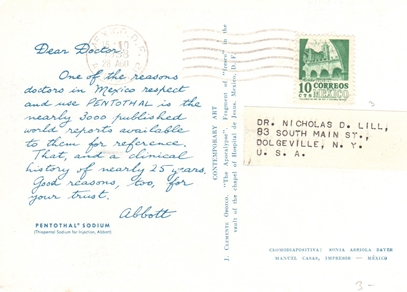 Dear Doctor,
One of the reasons
doctors in Mexico respect
and use PENTOTHAL is the
nearly 3000 published
world reports available
to them for reference.
That, and a clinical
history of nearly 25 years.
Good reasons, too, for
your trust.
Abbott
PENTOTHAL® SODIUM
(Thiopental Sodium for Injection, Abbott)
CONTEMPORARY ART
J. Clemente Orozco. "The Apocalypse". Fragments of "fresco" in the
vault of the chapel of Hospital de Jesus. Mexico, D. F.
MEXICO
10
CORREOS
CTS MEXICO
DR. NICHOLAS D. LILL,
83 SOUTH MAIN ST.,
DOLGEVILLE, N. Y.
U. S. A.
MANUEL CASAS, IMPRESOR — MÉXICO
3-